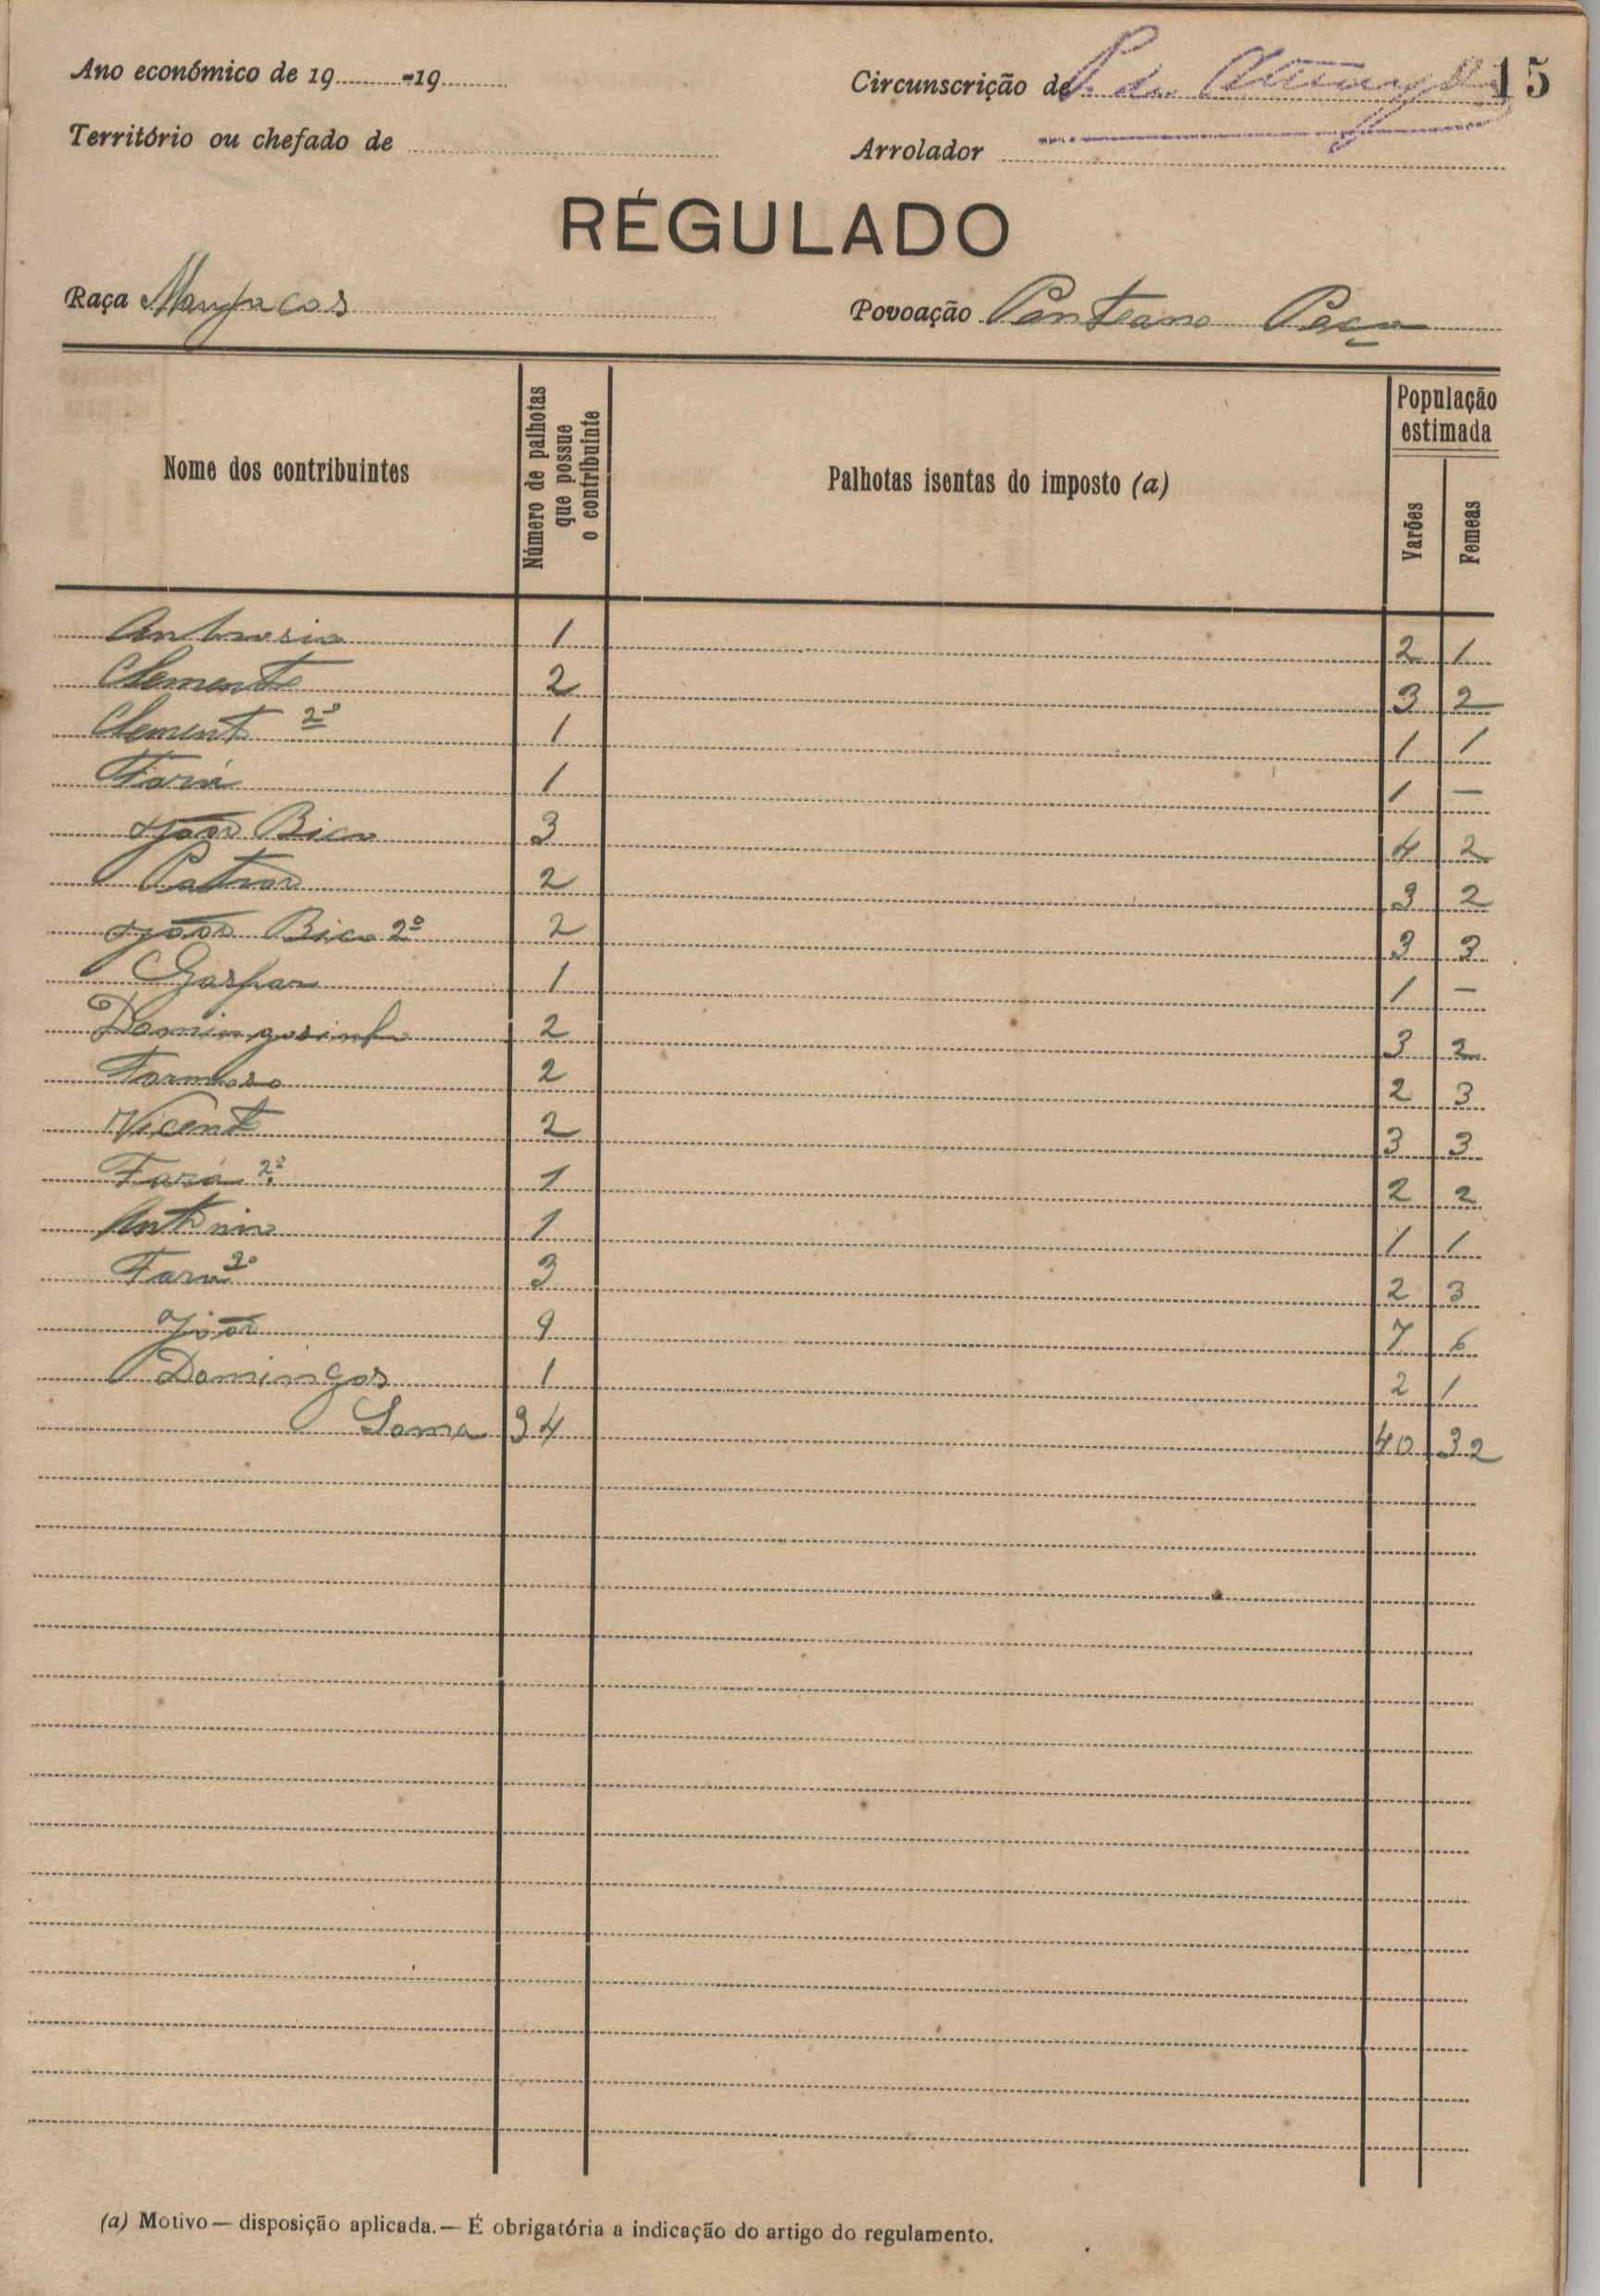 Ano económico de 19 -19
Circunscrição de
15
Território ou chefado de
Arrolador
RÉGULADO
Raça Manjacos
Povoação Panteano Peça
Nome dos contribuintes
Número de palhotas que possue o contribuinte
Palhotas isentas do imposto (a)
População estimada
Varões
Femeas
Ambrosio 1 2 1
Clemente 2 3 2
Clement 2º 1 1 1
Fará 1 1 —
João Bico 3 4 2
2 3 2
João Bico 2º 2 3 3
Gaspar 1 1 —
Domingosinho 2 3 2
Formoso 2 2 3
Vicent 2 3 3
Fará 2º 1 2 2
António 1 1 1
Fara 3º 3 2 3
João 9 7 6
Domingos 1 2 1
Soma 34 40 32
(a) Motivo — disposição aplicada. — É obrigatória a indicação do artigo do regulamento.